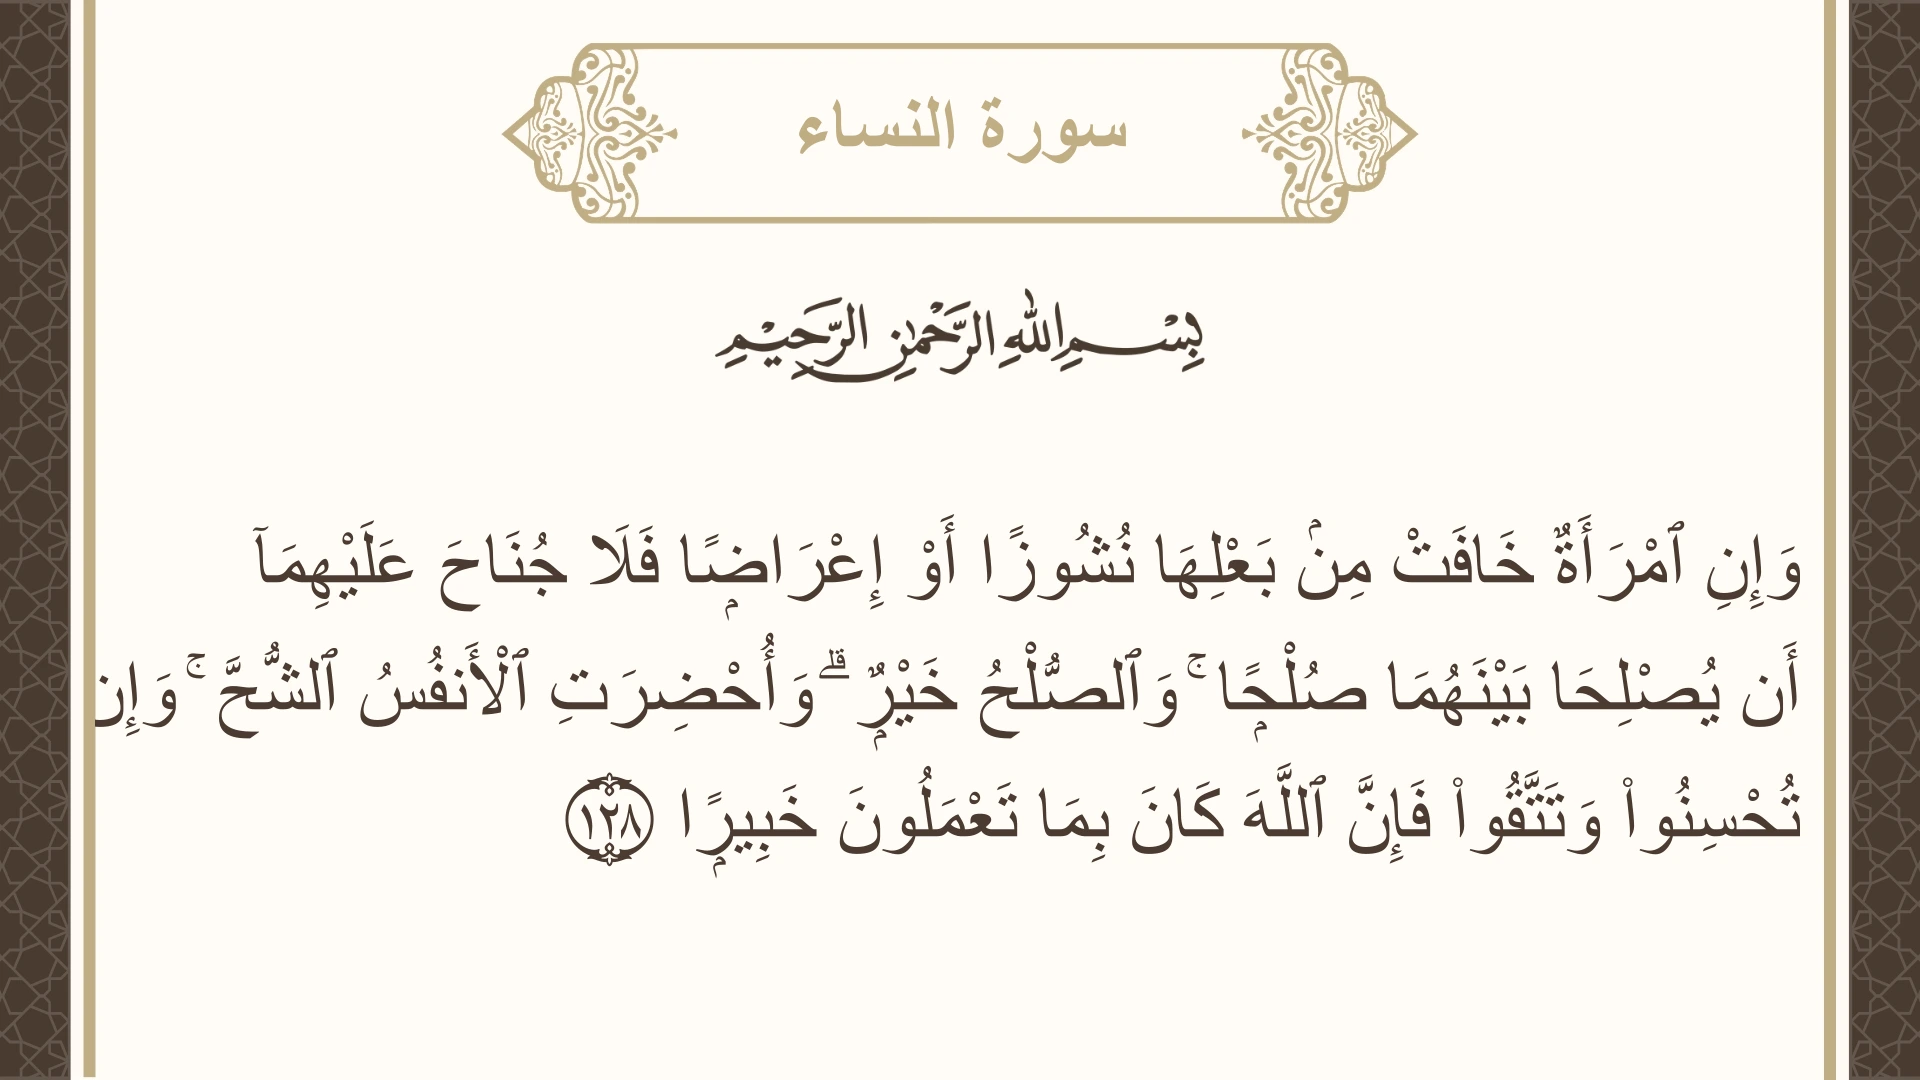 سورة النساء
بِسْمِ اللهِ الرَّحْمٰنِ الرَّحِيْمِ
وَإِنِ ٱمْرَأَةٌ خَافَتْ مِنۢ بَعْلِهَا نُشُوزًا أَوْ إِعْرَاضًۭا فَلَا جُنَاحَ عَلَيْهِمَآ
أَن يُصْلِحَا بَيْنَهُمَا صُلْحًۭا ۚ وَٱلصُّلْحُ خَيْرٌۭ ۗ وَأُحْضِرَتِ ٱلْأَنفُسُ ٱلشُّحَّ ۚ وَإِن
تُحْسِنُوا۟ وَتَتَّقُوا۟ فَإِنَّ ٱللَّهَ كَانَ بِمَا تَعْمَلُونَ خَبِيرًۭا ١٢٨